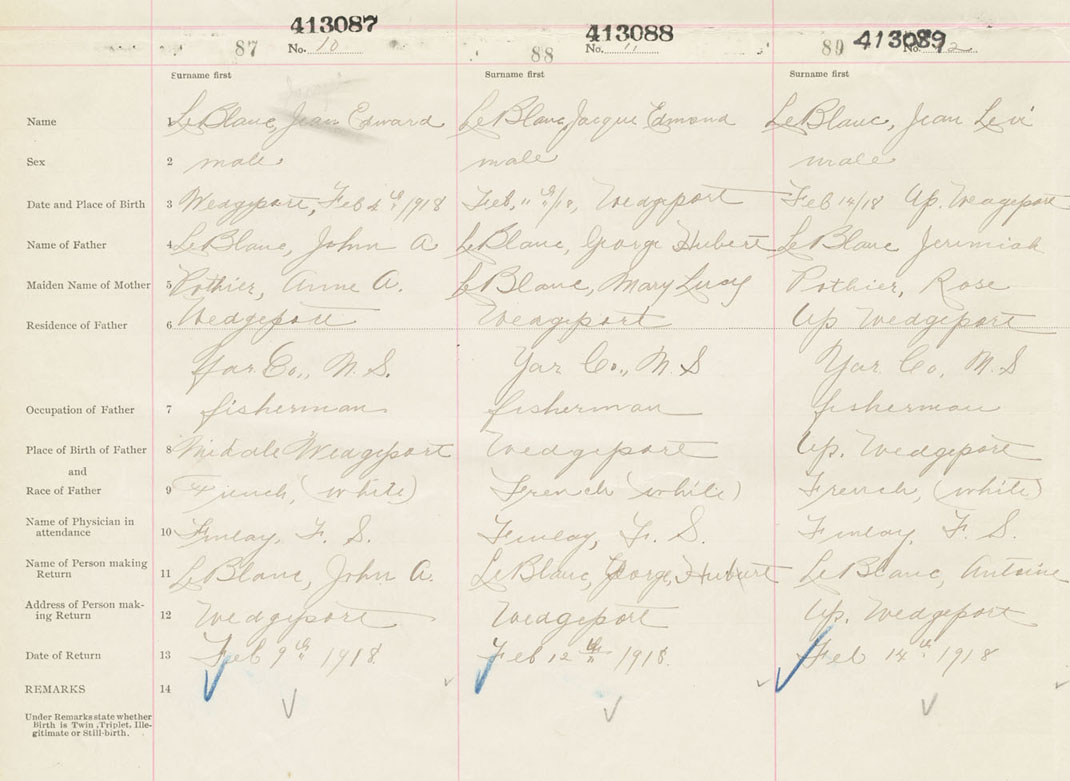 413087 413088 413089
87 No. 10 88 No. 11 89 No. 12
Surname first Surname first Surname first
Name 1 LeBlanc, Jean Edward LeBlanc, Jacque Edmond LeBlanc, Jean Levi
Sex 2 male male male
Date and Place of Birth 3 Wedgeport, Feb 4th/1918 Feb, 11th/18, Wedgeport Feb 14/18 Up. Wedgeport
Name of Father 4 LeBlanc, John A LeBlanc, George Hubert LeBlanc Jerimiah
Maiden Name of Mother 5 Pothier, Anne A. LeBlanc, Mary Lucy Pothier, Rose
Residence of Father 6 Wedgeport Wedgeport Up Wedgeport
Yar. Co., N. S. Yar Co., N. S Yar. Co, N. S
Occupation of Father 7 fisherman fisherman fisherman
Place of Birth of Father 8 Middle Wedgeport Wedgeport Up. Wedgeport
and
Race of Father 9 French, (white) French (white) French, (white)
Name of Physician in attendance 10 Finlay, F. S. Finlay, F. S. Finlay, F. S.
Name of Person making Return 11 LeBlanc, John A. LeBlanc, George, Hubert LeBlanc, Antoine
Address of Person making Return 12 Wedgeport Wedgeport Up. Wedgeport
Date of Return 13 Feb 9th 1918 Feb 12th 1918 Feb 14th 1918
REMARKS 14
Under Remarks state whether
Birth is Twin, Triplet, Ille-
gitimate or Still-birth.